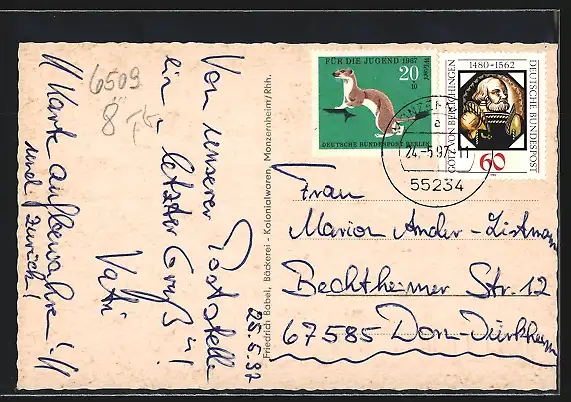 6509
8,-
Von unserer Poststelle
ein letzter Gruß!
Vati
25.5.97
!! Karte aufbewahren !!
und zurück!
Friedrich Babel, Bäckerei - Kolonialwaren, Monzernheim/Rhh.
FÜR DIE JUGEND 1967
Wiesel
20
10
DEUTSCHE BUNDESPOST BERLIN
1480-1562
GÖTZ VON BERLICHINGEN
DEUTSCHE BUNDESPOST
60
a
24.-5.97-11
55234
Frau
Marion Ander-Listmann
Bechtheimer Str. 12
67585 Dorn-Dürkheim